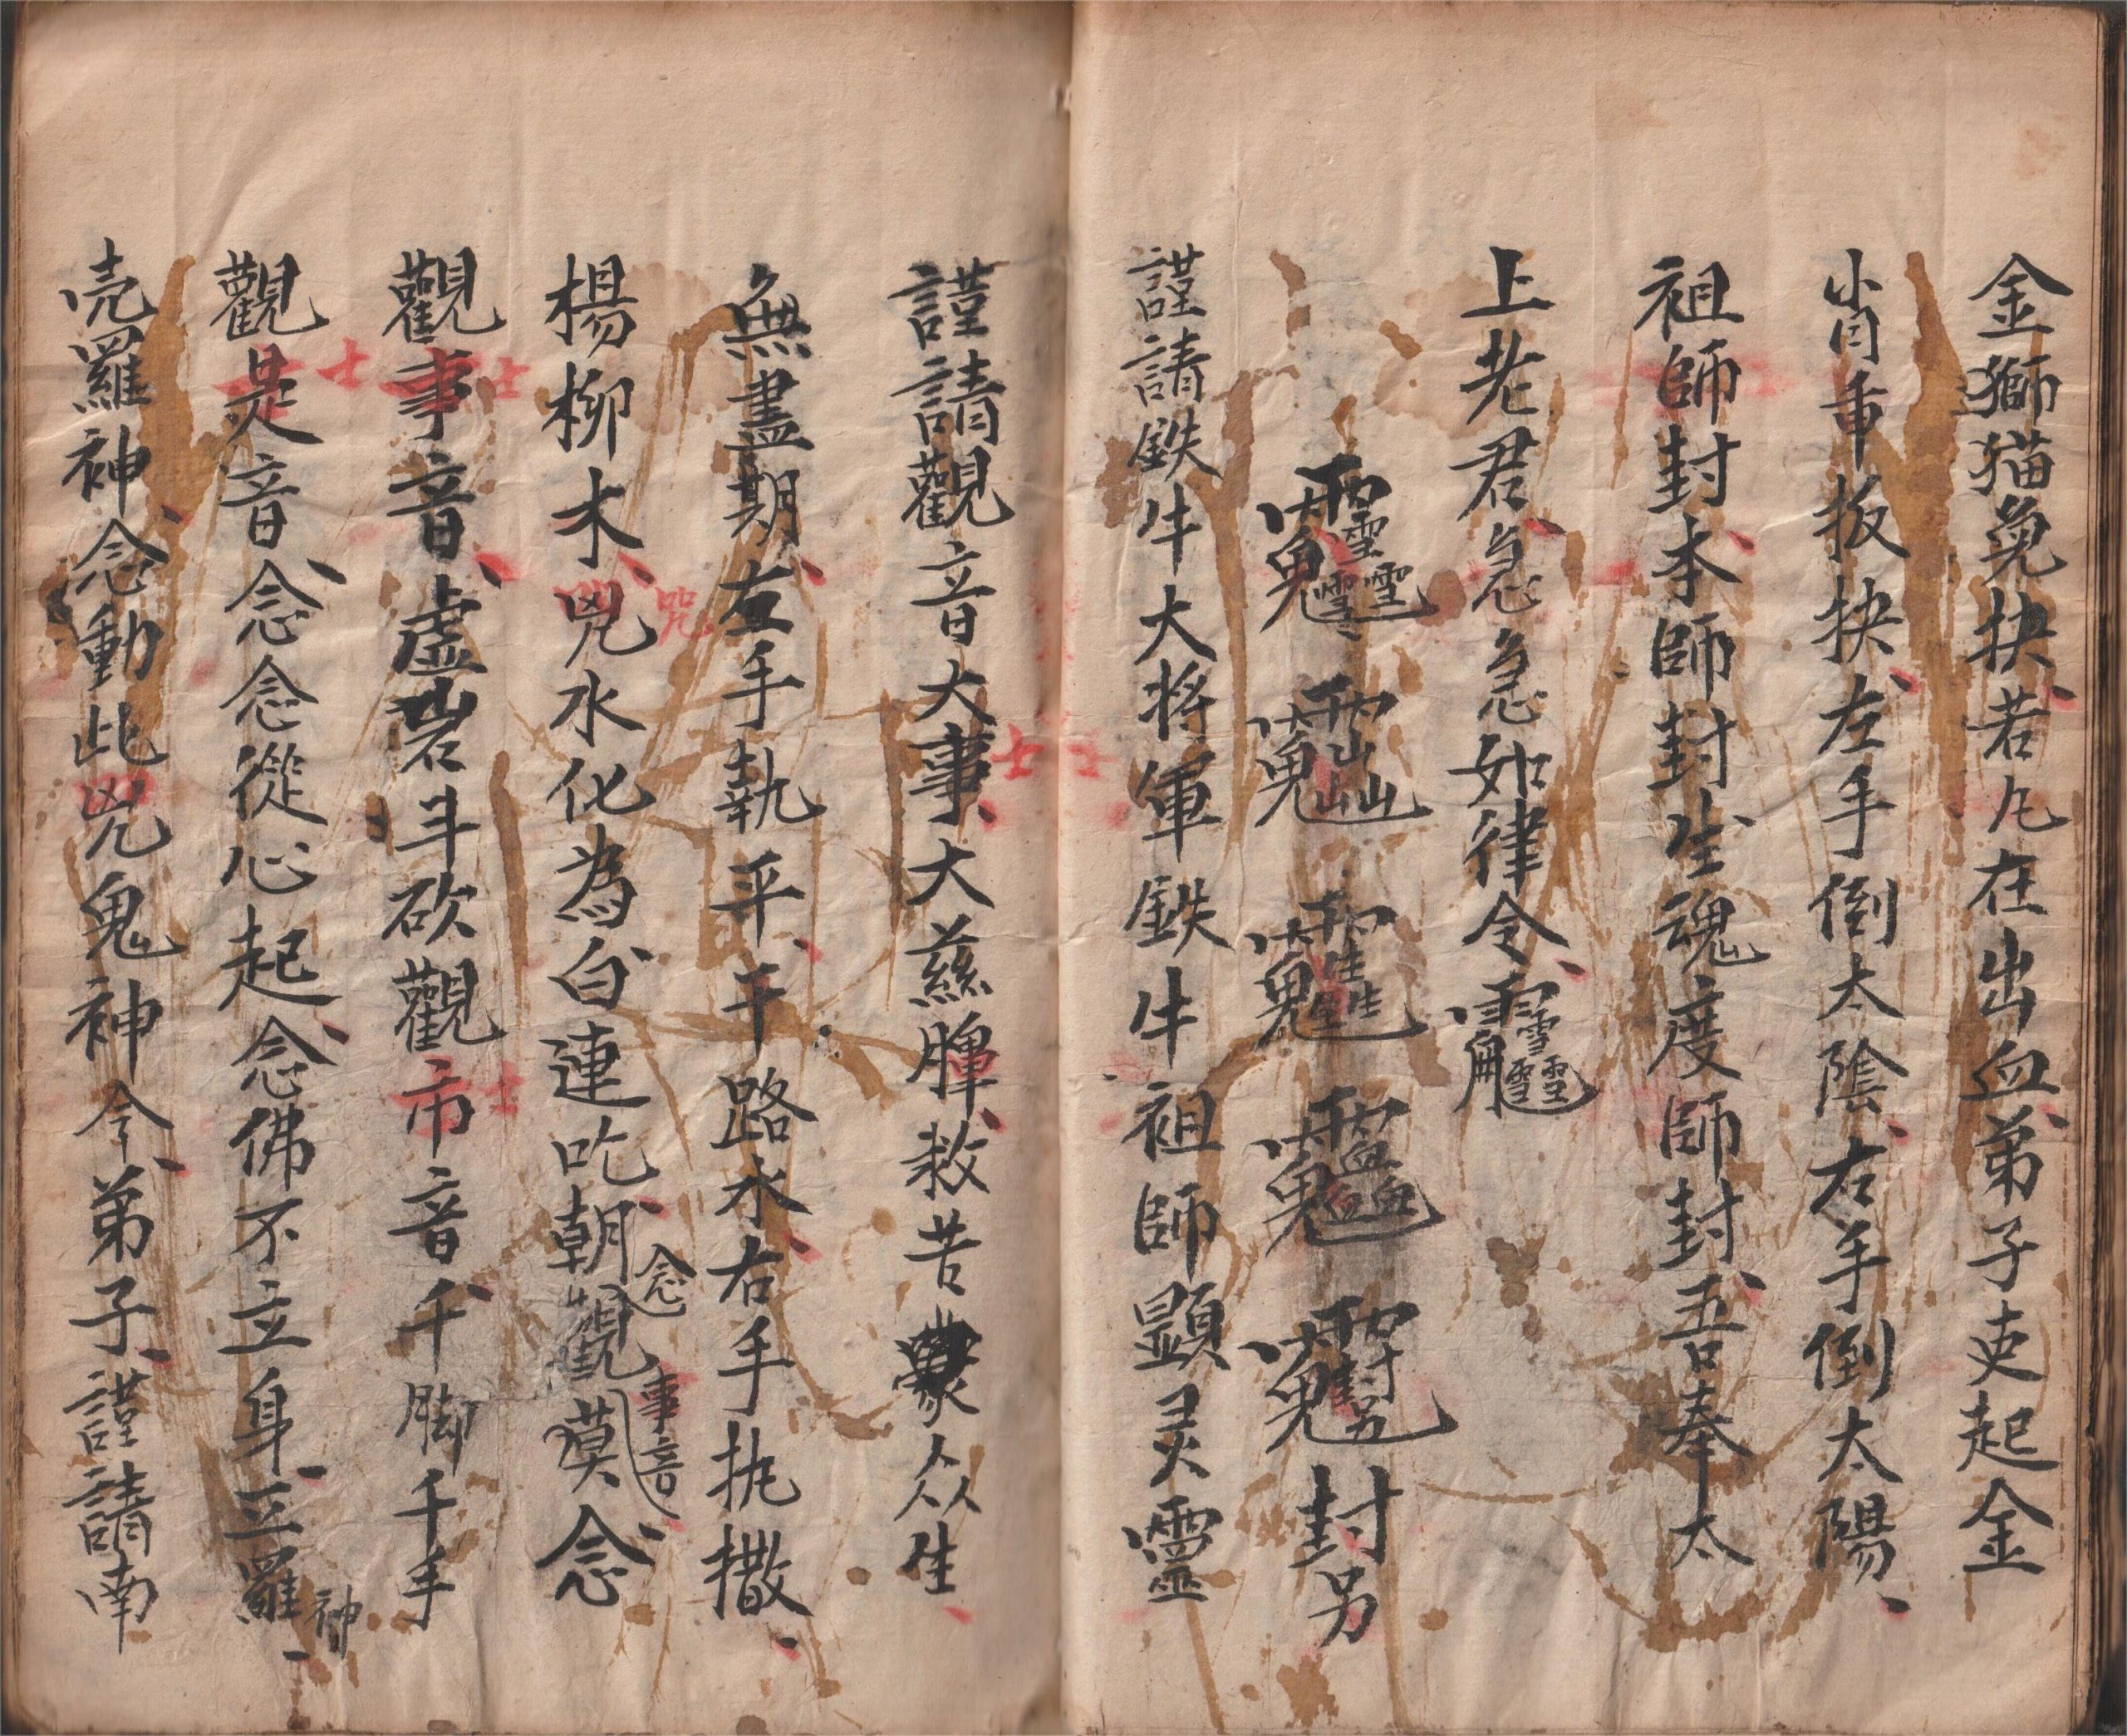 金獅猫兔抉若凢在出血弟子吏起金
肖重扳抉左手倒太陰右手倒太陽
祖師封本師封生魂度師封吾奉太
上老君急急如律令
封另
謹請鉄牛大将軍鉄牛祖師顕灵靈
謹請觀音大事士大慈腪救苦众生
無盡期左手執平千路水右手执撒
楊柳木咒水化為白連吃朝念觀事音莫念
觀事士音虚岩斗砍觀市士音千脚千手
觀是士音念念從心起念佛不立身立羅神
壳羅神念動此兇鬼神令弟子謹請南